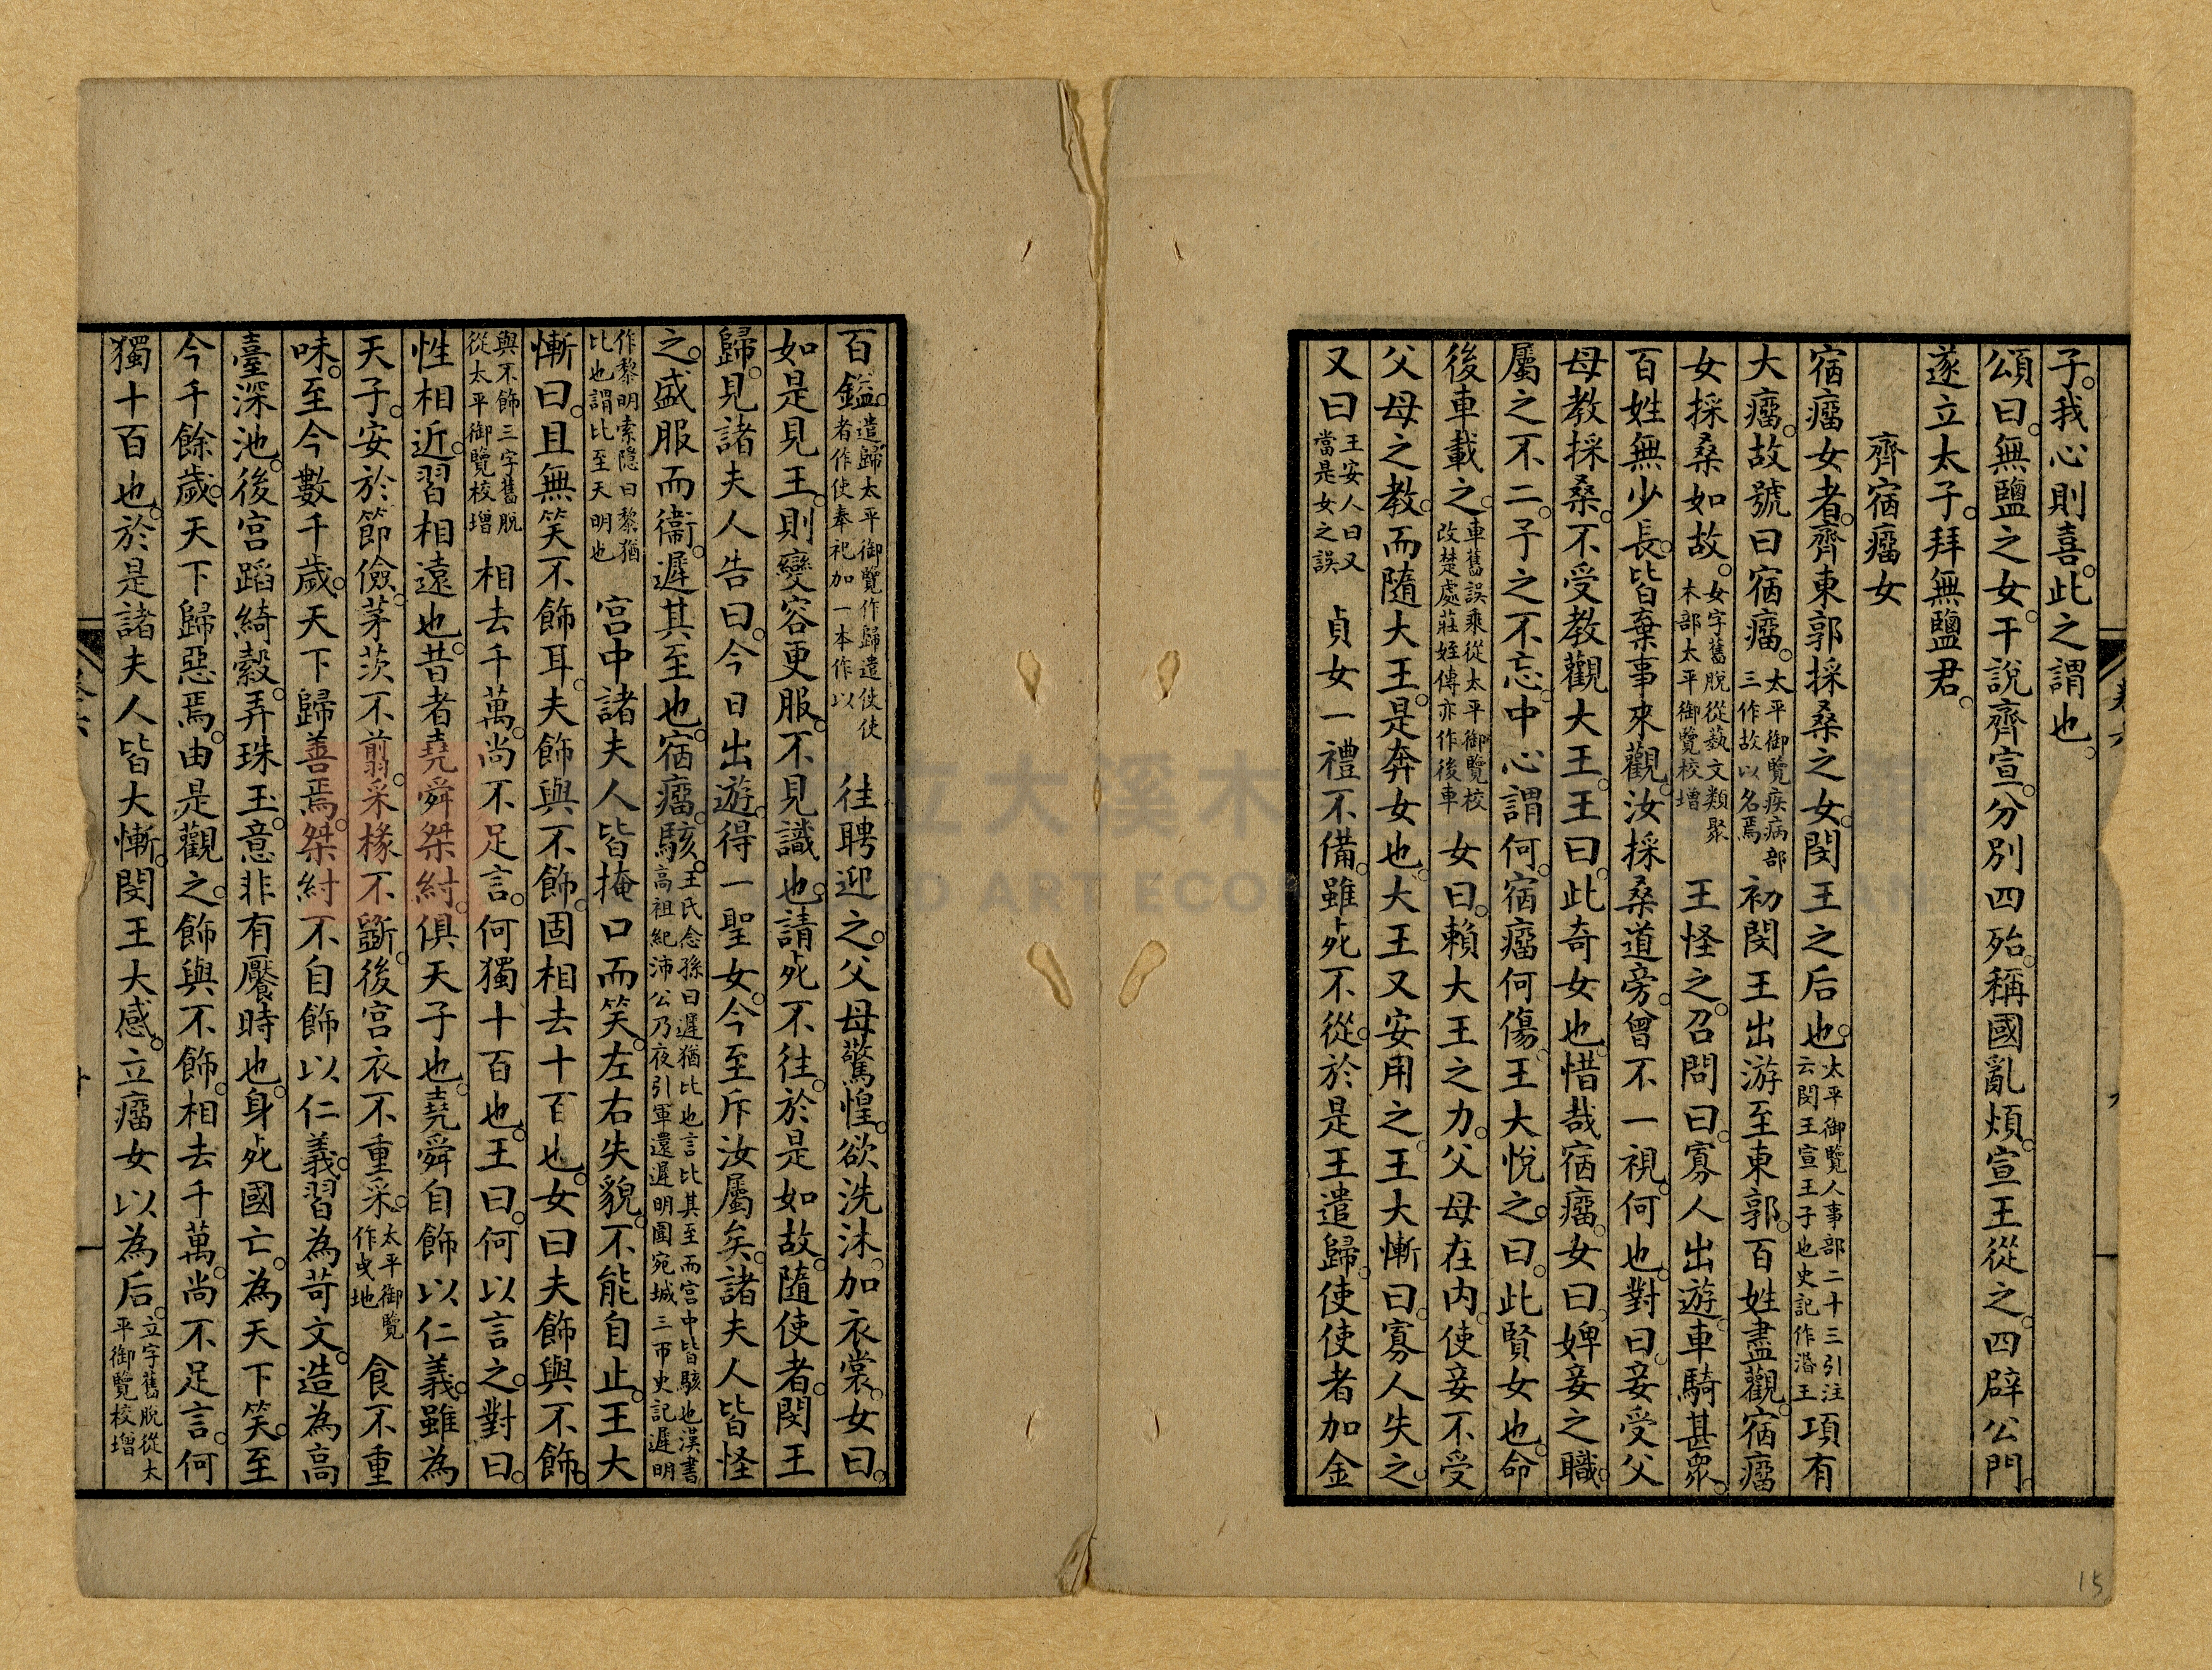 子我心則喜此之謂也
頌曰無鹽之女干說齊宣分別四殆稱國亂煩宣王從之四辟公門
遂立太子拜無鹽君
齊宿瘤女
宿瘤女者齊東郭採桑之女閔王之后也太平御覽人事部二十三引注云閔王宣王子也史記作湣王項有
大瘤故號曰宿瘤太平御覽疾病部三作故以名焉初閔王出游至東郭百姓盡觀宿瘤
女採桑如故女字舊脫從藝文類聚木部太平御覽校增王怪之召問曰寡人出遊車騎甚衆
百姓無少長皆棄事來觀汝採桑道旁曾不一視何也對曰妾受父
母教採桑不受教觀大王王曰此奇女也惜哉宿瘤女曰婢妾之職
屬之不二予之不忘中心謂何宿瘤何傷王大悅之曰此賢女也命
後車載之車舊誤乘從太平御覽校改楚處莊姪傳亦作後車女曰賴大王之力父母在內使妾不受
父母之教而隨大王是奔女也大王又安用之王大慚曰寡人失之
又曰王安人曰又當是女之誤貞女一禮不備雖死不從於是王遣歸使使者加金
百鎰遣歸太平御覽作歸遣使使者作使奉祀加一本作以往聘迎之父母驚惶欲洗沐加衣裳女曰
如是見王則變容更服不見識也請死不往於是如故隨使者閔王
歸見諸夫人告曰今日出遊得一聖女今至斥汝屬矣諸夫人皆怪
之盛服而衞遲其至也宿瘤駭王氏念孫曰遲猶比也言比其至而宮中皆駭也漢書高祖紀沛公乃夜引軍還遲明圍宛城三帀史記遲明
作黎明索隱曰黎猶比也謂比至天明也宮中諸夫人皆掩口而笑左右失貌不能自止王大
慚曰且無笑不飾耳夫飾與不飾固相去十百也女曰夫飾與不飾
與不飾三字舊脫從太平御覽校增相去千萬尚不足言何獨十百也王曰何以言之對曰
性相近習相遠也昔者堯舜桀紂俱天子也堯舜自飾以仁義雖為
天子安於節儉茅茨不翦采椽不斲後宮衣不重采太平御覽作曳地食不重
味至今數千歲天下歸善焉桀紂不自飾以仁義習為苛文造為高
臺深池後宮蹈綺縠弄珠玉意非有饜時也身死國亡為天下笑至
今千餘歲天下歸惡焉由是觀之飾與不飾相去千萬尚不足言何
獨十百也於是諸夫人皆大慚閔王大感立瘤女以為后立字舊脫從太平御覽校增
15